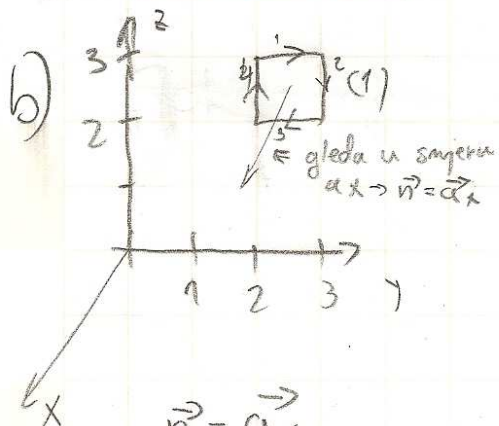 b)
z
3
1
2
4
(1)
3
2
gleda u smjeru
ax → n⃗ = a⃗x
1 2 3 y
x
n⃗ = a⃗x